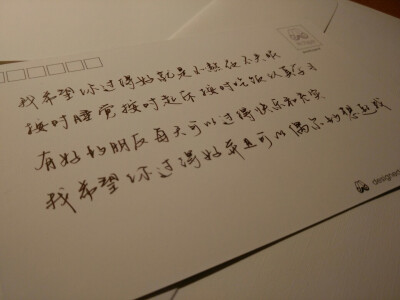 我希望你过得好就是
按时睡觉按时起床按时吃饭认真学习
有好的朋友每天可以过得快乐和充实
我希望你过得好并且可以偶尔的想起我